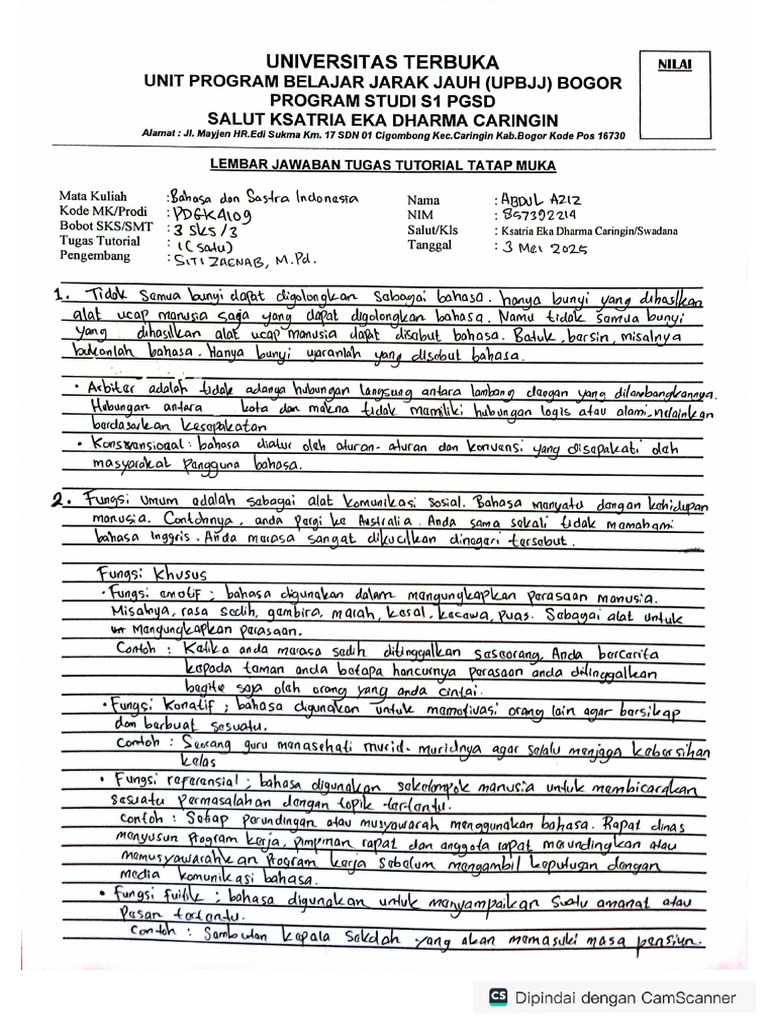 UNIVERSITAS TERBUKA
UNIT PROGRAM BELAJAR JARAK JAUH (UPBJJ) BOGOR
PROGRAM STUDI S1 PGSD
SALUT KSATRIA EKA DHARMA CARINGIN
Alamat : Jl. Mayjen HR.Edi Sukma Km. 17 SDN 01 Cigombong Kec.Caringin Kab.Bogor Kode Pos 16730
NILAI
LEMBAR JAWABAN TUGAS TUTORIAL TATAP MUKA
Mata Kuliah : Bahasa dan Sastra Indonesia
Kode MK/Prodi : PDGK4109
Bobot SKS/SMT : 3 SKS / 3
Tugas Tutorial : 1 (satu)
Pengembang : SITI ZAENAB, M.Pd.
Nama : ABDUL AZIZ
NIM : 857392214
Salut/Kls : Ksatria Eka Dharma Caringin/Swadana
Tanggal : 3 Mei 2025
1. Tidak semua bunyi dapat digolongkan sebagai bahasa. hanya bunyi yang dihasilkan
alat ucap manusia saja yang dapat digolongkan bahasa. Namu tidak semua bunyi
yang dihasilkan alat ucap manusia dapat disebut bahasa. Batuk, bersin, misalnya
bukanlah bahasa. Hanya bunyi ujaranlah yang disebut bahasa.
• Arbiter adalah tidak adanya hubungan langsung antara lambang dengan yang dilambangkannya.
Hubungan antara kata dan makna tidak memiliki hubungan logis atau alami, melainkan
berdasarkan kesepakatan
• Konvensional : bahasa diatur oleh aturan-aturan dan konvensi yang disepakati oleh
masyarakat pengguna bahasa.
2. Fungsi umum adalah sebagai alat komunikasi sosial. Bahasa menyatu dengan kehidupan
manusia. Contohnya, anda pergi ke Australia. Anda sama sekali tidak memahami
bahasa Inggris. Anda merasa sangat dikucilkan dinegeri tersebut.
Fungsi Khusus
• Fungsi emotif ; bahasa digunakan dalam mengungkapkan perasaan manusia.
Misalnya, rasa sedih, gembira, marah, kesal, kecewa, puas. Sebagai alat untuk
mengungkapkan perasaan.
Contoh : Ketika anda merasa sedih ditinggalkan seseorang, Anda bercerita
kepada teman anda betapa hancurnya perasaan anda ditinggalkan
begitu saja oleh orang yang anda cintai.
• Fungsi Konatif ; bahasa digunakan untuk memotivasi orang lain agar bersikap
dan berbuat sesuatu.
Contoh : Seorang guru menasehati murid-muridnya agar selalu menjaga kebersihan
kelas
• Fungsi referensial ; bahasa digunakan sekelompok manusia untuk membicarakan
sesuatu permasalahan dengan topik tertentu.
contoh : Setiap perundingan atau musyawarah menggunakan bahasa. Rapat dinas
menyusun program kerja, pimpinan rapat dan anggota rapat merundingkan atau
memusyawarahkan program kerja sebelum mengambil keputusan dengan
media komunikasi bahasa.
• Fungsi fuitik ; bahasa digunakan untuk menyampaikan suatu amanat atau
pesan tertentu.
Contoh : Sambutan kepala sekolah yang akan memasuki masa pensiun.
CS Dipindai dengan CamScanner